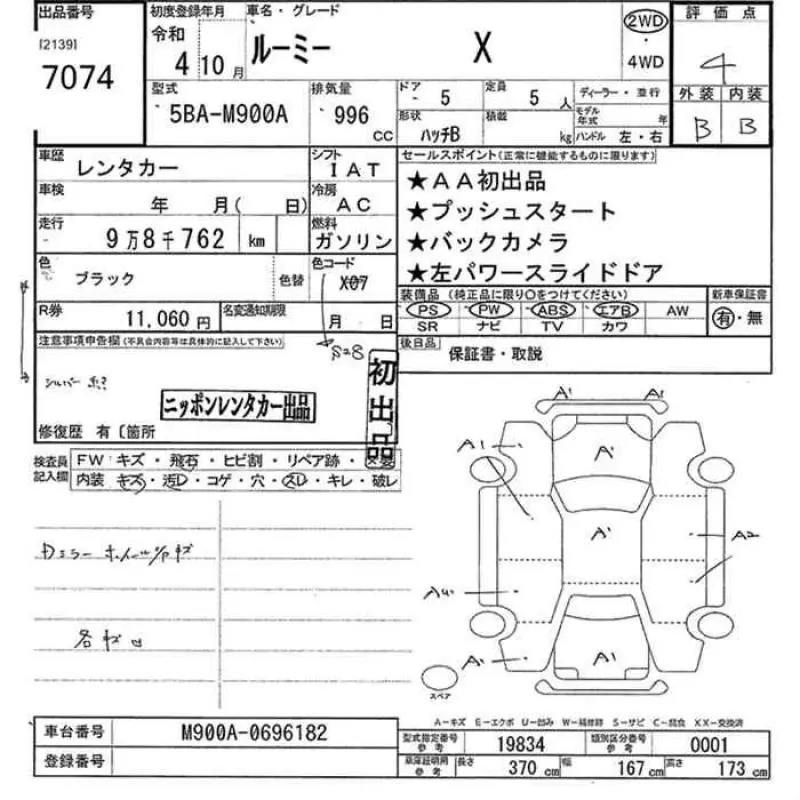 出品番号
[2139]
7074
初度登録年月
令和
4
10 月
車名・グレード
ルーミー X
2WD
・
4WD
評価点
4
外装 内装
B B
型式
5BA-M900A
排気量
996
CC
ドア
5
定員
5 人
ディーラー・並行
形状
ハッチB
積載
kg
モデル年式
年
ハンドル 左・右
車歴
レンタカー
シフト
IAT
車検
年 月( 日)
冷房
AC
走行
9万8千762 km
燃料
ガソリン
色
ブラック
色替
色コード
X07
R券
11,060 円
名変通知期限
月 日
S28
セールスポイント(正常に機能するものに限ります)
★AA初出品
★プッシュスタート
★バックカメラ
★左パワースライドドア
装備品 (純正品に限り○をつけてください)
PS PW ABS エアB AW
SR ナビ TV カワ
新車保証書
有・無
後日品
保証書・取説
注意事項申告欄(不具合内容等は具体的に記入して下さい)
シルバー
ニッポンレンタカー出品
初出品
修復歴 有〔箇所
検査員
記入欄
FW キズ・飛石・ヒビ割・リペア跡・
内装 キズ・汚レ・コゲ・穴・スレ・キレ・破レ
A1 A1
A1
A1
A1
A2
A1
A1
スペア
A-キズ E-エクボ U-凹み W-補修跡 S-サビ C-腐食 XX-交換済
車台番号
M900A-0696182
登録番号
型式指定番号
参考
19834
類別区分番号
参考
0001
車庫証明用
参考
長さ
370 cm
幅
167 cm
高さ
173 cm